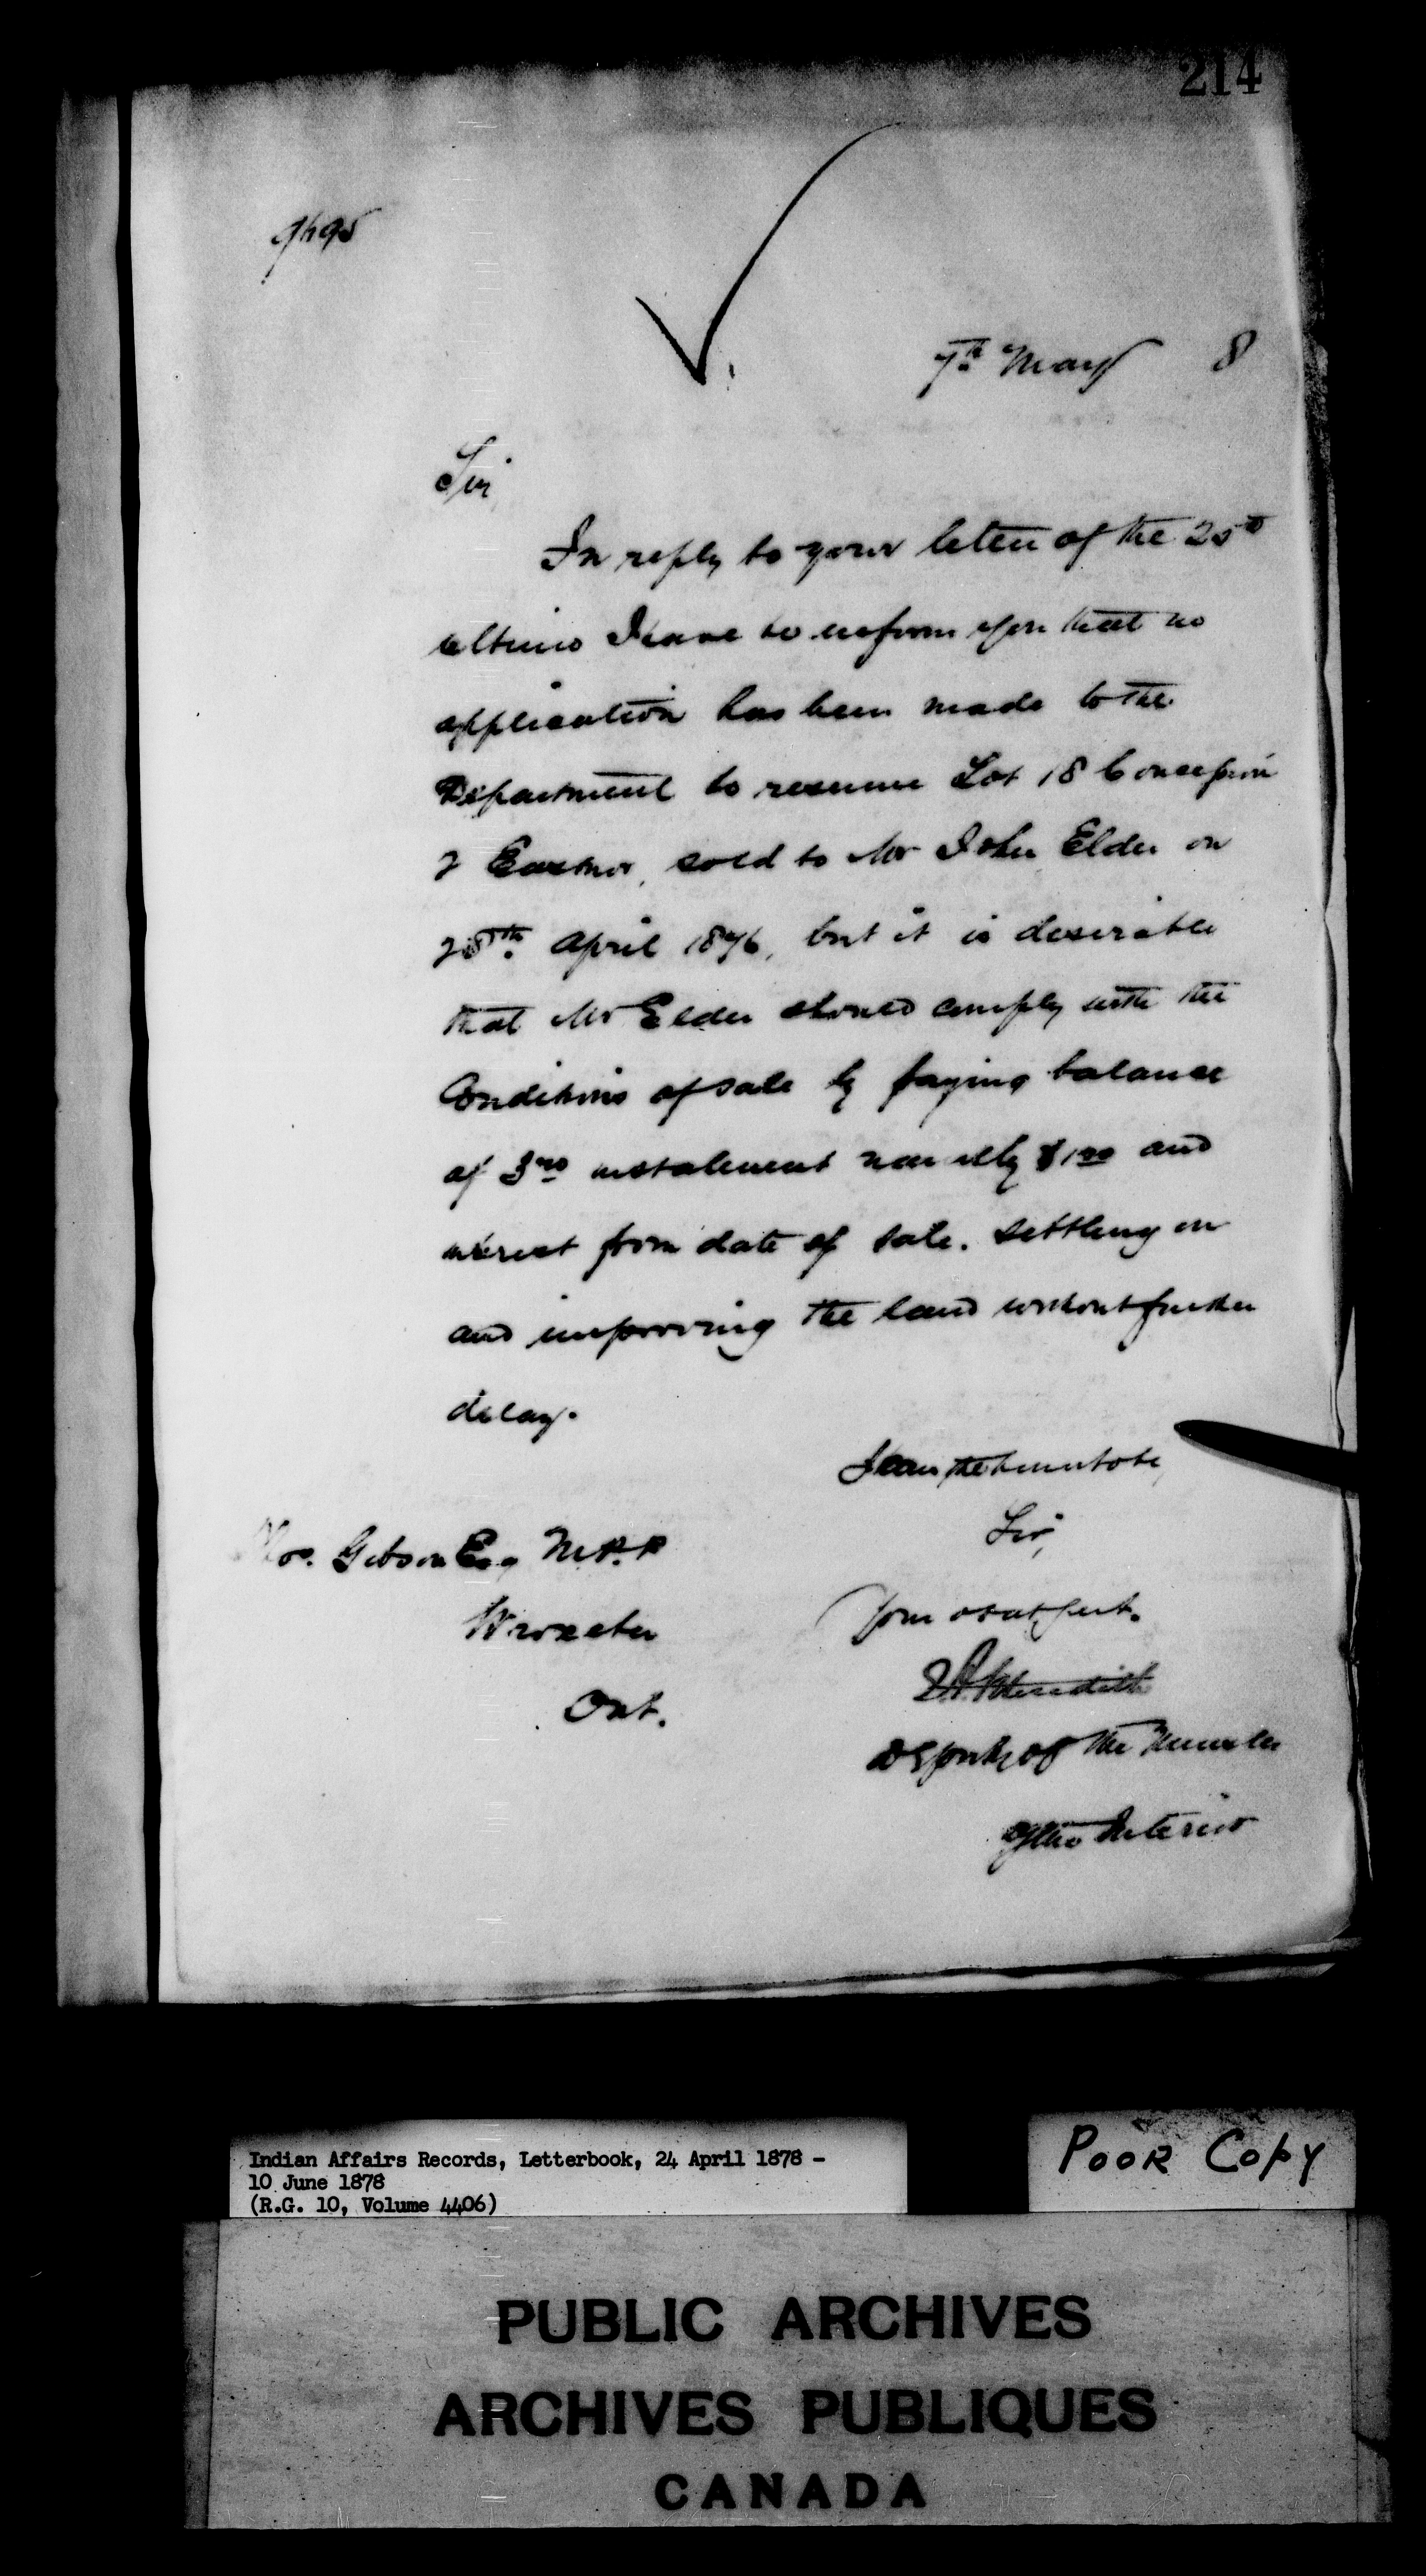 214
7th May 8
Sir
In reply to your letter of the 25th
ultimo I have to inform you that no
application has been made to the
Department to resume Lot 18 Concession
2 Eastnor, sold to Mr John Elder on
28th April 1876, but it is desirable
that Mr Elder should comply with the
Conditions of sale by paying balance
of 3rd instalment namely $1.00 and
interest from date of sale. settling on
and improving the land without further
delay.
I have the honor to be,
Sir,
Thos. Gibson Esq M.P.P
Your obdt Servt.
Wroxeter
E A Meredith
Ont.
Deputy of the Minister
of the Interior
Indian Affairs Records, Letterbook, 24 April 1878 -
10 June 1878
(R.G. 10, Volume 4406)
POOR COPY
PUBLIC ARCHIVES
ARCHIVES PUBLIQUES
CANADA